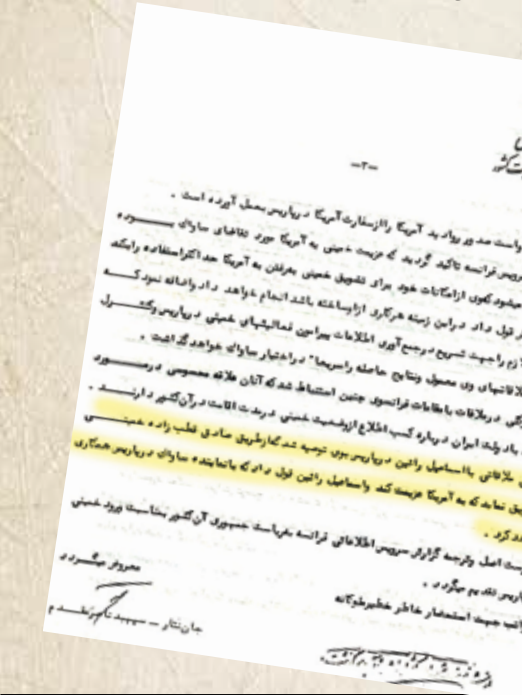 ـ۲ـ
است صدور روادید آمریکا را از سفارت آمریکا در پاریس بعمل آورده است .
سرویس فرانسه تاکید گردید که عزیمت خمینی به آمریکا مورد تقاضای ساواک بوده
میشود که وی از امکانات خود برای تشویق خمینی به رفتن به آمریکا حداکثر استفاده را بکند
قول داد در این زمینه هرکاری از او ساخته باشد انجام خواهد داد و اضافه نمود که
لازم را جهت تسریع در جمع آوری اطلاعات پیرامون فعالیتهای خمینی در پاریس و کنترل
ملاقاتهای وی معمول و نتایج حاصله را سریعا" در اختیار ساواک خواهد گذاشت .
در ملاقات با مقامات فرانسوی چنین استنباط شد که آنان علاقه مخصوصی در مورد
با دولت ایران درباره کسب اطلاع از وضعیت خمینی در مدت اقامت در آن کشور دارند .
ملاقاتی با اسماعیل رائین در پاریس بوی توصیه شد که از طریق صادق قطب زاده خمینی
نماید که به آمریکا عزیمت کند و اسماعیل رائین قول داد که با نماینده ساواک در پاریس همکاری
کرد .
اصل و ترجمه گزارش سرویس اطلاعاتی فرانسه به ریاست جمهوری آن کشور بمناسبت ورود خمینی
پاریس تقدیم میگردد .
جهت استحضار خاطر خطیر ملوکانه
معروض میگردد
جان نثار ـ سپهبد ناصر مقدم